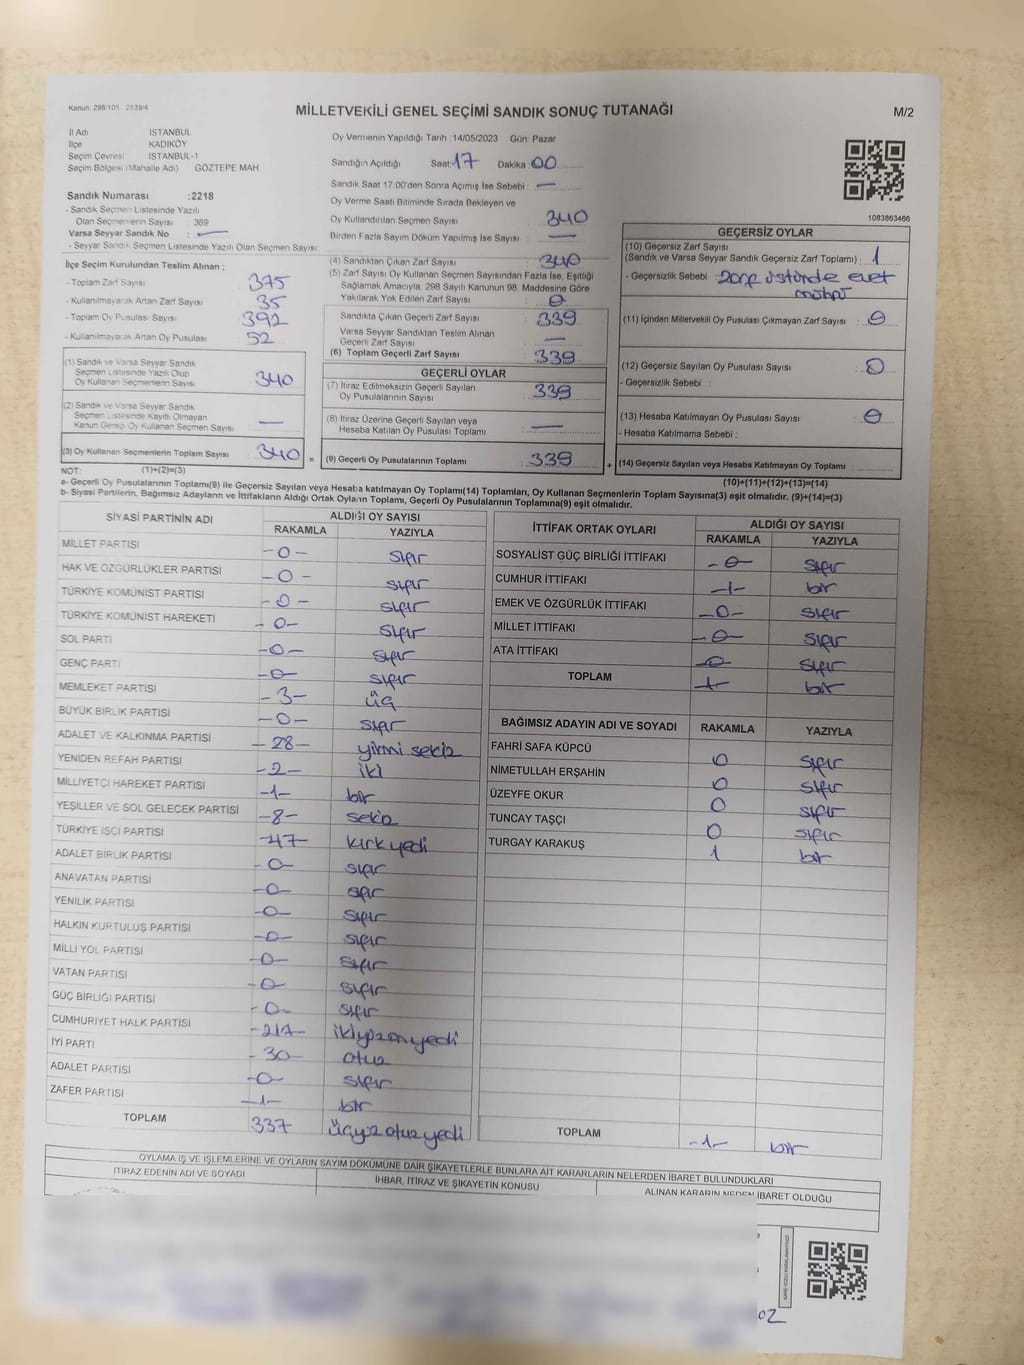 Kanun: 298/105 , 2839/4
MİLLETVEKİLİ GENEL SEÇİMİ SANDIK SONUÇ TUTANAĞI
M/2
İl Adı İSTANBUL
İlçe KADIKÖY
Seçim Çevresi İSTANBUL-1
Seçim Bölgesi (Mahalle Adı) GÖZTEPE MAH
Sandık Numarası :2218
- Sandık Seçmen Listesinde Yazılı
Olan Seçmenlerin Sayısı 369
Varsa Seyyar Sandık No : —
- Seyyar Sandık Seçmen Listesinde Yazılı Olan Seçmen Sayısı:
Oy Vermenin Yapıldığı Tarih : 14/05/2023 Gün: Pazar
Sandığın Açıldığı Saat: 17 Dakika : 00
Sandık Saat 17:00'den Sonra Açımış İse Sebebi : —
Oy Verme Saati Bitiminde Sırada Bekleyen ve
Oy Kullandırılan Seçmen Sayısı 340
Birden Fazla Sayım Döküm Yapılmış İse Sayısı : —
1083863466
İlçe Seçim Kurulundan Teslim Alınan :
- Toplam Zarf Sayısı 375
- Kullanılmayarak Artan Zarf Sayısı 35
- Toplam Oy Pusulası Sayısı 392
- Kullanılmayarak Artan Oy Pusulası 52
(1) Sandık ve Varsa Seyyar Sandık
Seçmen Listesinde Yazılı Olup
Oy Kullanan Seçmenlerin Sayısı 340
(2) Sandık ve Varsa Seyyar Sandık
Seçmen Listesinde Kayıtlı Olmayan
Kanun Gereği Oy Kullanan Seçmen Sayısı —
(3) Oy Kullanan Seçmenlerin Toplam Sayısı 340 =
(4) Sandıktan Çıkan Zarf Sayısı : 340
(5) Zarf Sayısı Oy Kullanan Seçmen Sayısından Fazla İse, Eşitliği
Sağlamak Amacıyla, 298 Sayılı Kanunun 98. Maddesine Göre
Yakılarak Yok Edilen Zarf Sayısı : 0
Sandıkta Çıkan Geçerli Zarf Sayısı : 339
Varsa Seyyar Sandıktan Teslim Alınan
Geçerli Zarf Sayısı : —
(6) Toplam Geçerli Zarf Sayısı : 339
GEÇERLİ OYLAR
(7) İtiraz Edilmeksizin Geçerli Sayılan
Oy Pusulalarının Sayısı : 339
(8) İtiraz Üzerine Geçerli Sayılan veya
Hesaba Katılan Oy Pusulası Toplamı : —
(9) Geçerli Oy Pusulalarının Toplamı : 339 +
GEÇERSİZ OYLAR
(10) Geçersiz Zarf Sayısı
(Sandık ve Varsa Seyyar Sandık Geçersiz Zarf Toplamı) : 1
- Geçersizlik Sebebi : zarf üstünde evet
mührü
(11) İçinden Milletvekili Oy Pusulası Çıkmayan Zarf Sayısı : 0
(12) Geçersiz Sayılan Oy Pusulası Sayısı : 0
- Geçersizlik Sebebi :
(13) Hesaba Katılmayan Oy Pusulası Sayısı : 0
- Hesaba Katılmama Sebebi :
(14) Geçersiz Sayılan veya Hesaba Katılmayan Oy Toplamı :
NOT: (1)+(2)=(3) (10)+(11)+(12)+(13)=(14)
a- Geçerli Oy Pusulalarının Toplamı(9) ile Geçersiz Sayılan veya Hesaba katılmayan Oy Toplamı(14) Toplamları, Oy Kullanan Seçmenlerin Toplam Sayısına(3) eşit olmalıdır. (9)+(14)=(3)
b- Siyasi Partilerin, Bağımsız Adayların ve İttifakların Aldığı Ortak Oyların Toplamı, Geçerli Oy Pusulalarının Toplamına(9) eşit olmalıdır.
SİYASİ PARTİNİN ADI ALDIĞI OY SAYISI
RAKAMLA YAZIYLA
MİLLET PARTİSİ -0- sıfır
HAK VE ÖZGÜRLÜKLER PARTİSİ -0- sıfır
TÜRKİYE KOMÜNİST PARTİSİ -0- sıfır
TÜRKİYE KOMÜNİST HAREKETİ -0- sıfır
SOL PARTİ -0- sıfır
GENÇ PARTİ -0- sıfır
MEMLEKET PARTİSİ -3- üç
BÜYÜK BİRLİK PARTİSİ -0- sıfır
ADALET VE KALKINMA PARTİSİ -28- yirmi sekiz
YENİDEN REFAH PARTİSİ -2- iki
MİLLİYETÇİ HAREKET PARTİSİ -1- bir
YEŞİLLER VE SOL GELECEK PARTİSİ -8- sekiz
TÜRKİYE İŞÇİ PARTİSİ -47- kırk yedi
ADALET BİRLİK PARTİSİ -0- sıfır
ANAVATAN PARTİSİ -0- sıfır
YENİLİK PARTİSİ -0- sıfır
HALKIN KURTULUŞ PARTİSİ -0- sıfır
MİLLİ YOL PARTİSİ -0- sıfır
VATAN PARTİSİ -0- sıfır
GÜÇ BİRLİĞİ PARTİSİ -0- sıfır
CUMHURİYET HALK PARTİSİ -217- ikiyüzonyedi
İYİ PARTİ -30- otuz
ADALET PARTİSİ -0- sıfır
ZAFER PARTİSİ -1- bir
TOPLAM 337 üçyüz otuz yedi
İTTİFAK ORTAK OYLARI ALDIĞI OY SAYISI
RAKAMLA YAZIYLA
SOSYALİST GÜÇ BİRLİĞİ İTTİFAKI -0- sıfır
CUMHUR İTTİFAKI -1- bir
EMEK VE ÖZGÜRLÜK İTTİFAKI -0- sıfır
MİLLET İTTİFAKI -0- sıfır
ATA İTTİFAKI -0- sıfır
TOPLAM -1- bir
BAĞIMSIZ ADAYIN ADI VE SOYADI RAKAMLA YAZIYLA
FAHRİ SAFA KÜPCÜ 0 sıfır
NİMETULLAH ERŞAHİN 0 sıfır
ÜZEYFE OKUR 0 sıfır
TUNCAY TAŞÇI 0 sıfır
TURGAY KARAKUŞ 1 bir
TOPLAM -1- bir
OYLAMA İŞ VE İŞLEMLERİNE VE OYLARIN SAYIM DÖKÜMÜNE DAİR ŞİKAYETLERLE BUNLARA AİT KARARLARIN NELERDEN İBARET BULUNDUKLARI
İTİRAZ EDENİN ADI VE SOYADI İHBAR, İTİRAZ VE ŞİKAYETİN KONUSU ALINAN KARARIN NEDEN İBARET OLDUĞU